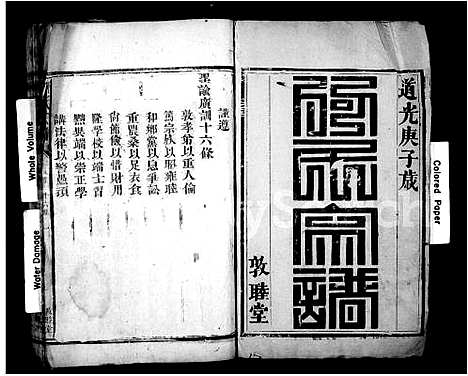 道光庚子歳
氏宗譜
敦睦堂
謹遵
聖諭廣訓十六條
敦孝弟以重人倫
篤宗族以昭雍睦
和鄉黨以息爭訟
重農桑以足衣食
尚節儉以惜財用
隆學校以端士習
黜異端以崇正學
講法律以儆愚頑
Whole Volume
Water Damage
Colored Paper